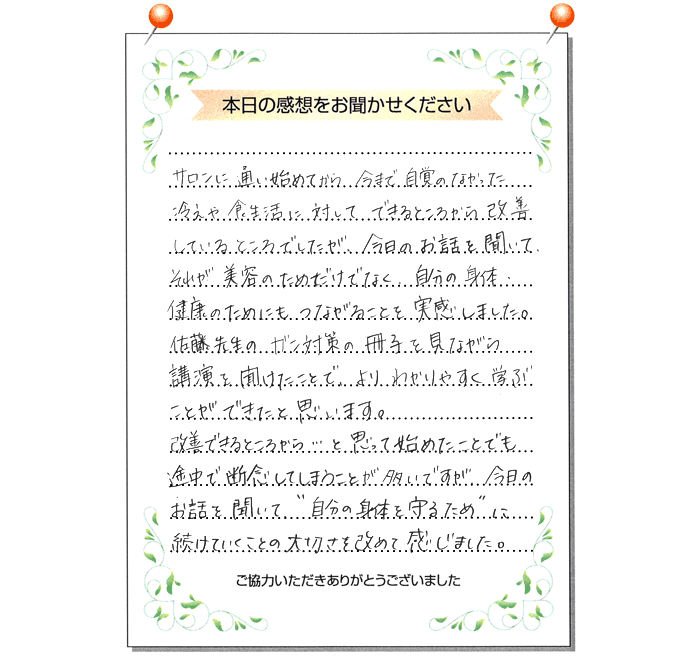 本日の感想をお聞かせください
サロンに通い始めてから、今まで自覚のなかった
冷えや食生活に対して、できるところから改善
しているところでしたが、今日のお話を聞いて、
それが美容のためだけでなく、自分の身体・
健康のためにもつながることを実感しました。
佐藤先生のガン対策の冊子を見ながら
講演を聞けたことで、よりわかりやすく学ぶ
ことができたと思います。
改善できるところから…と思って始めたことでも
途中で断念してしまうことが多いですが、今日の
お話を聞いて、"自分の身体を守るため"に
続けていくことの大切さを改めて感じました。
ご協力いただきありがとうございました